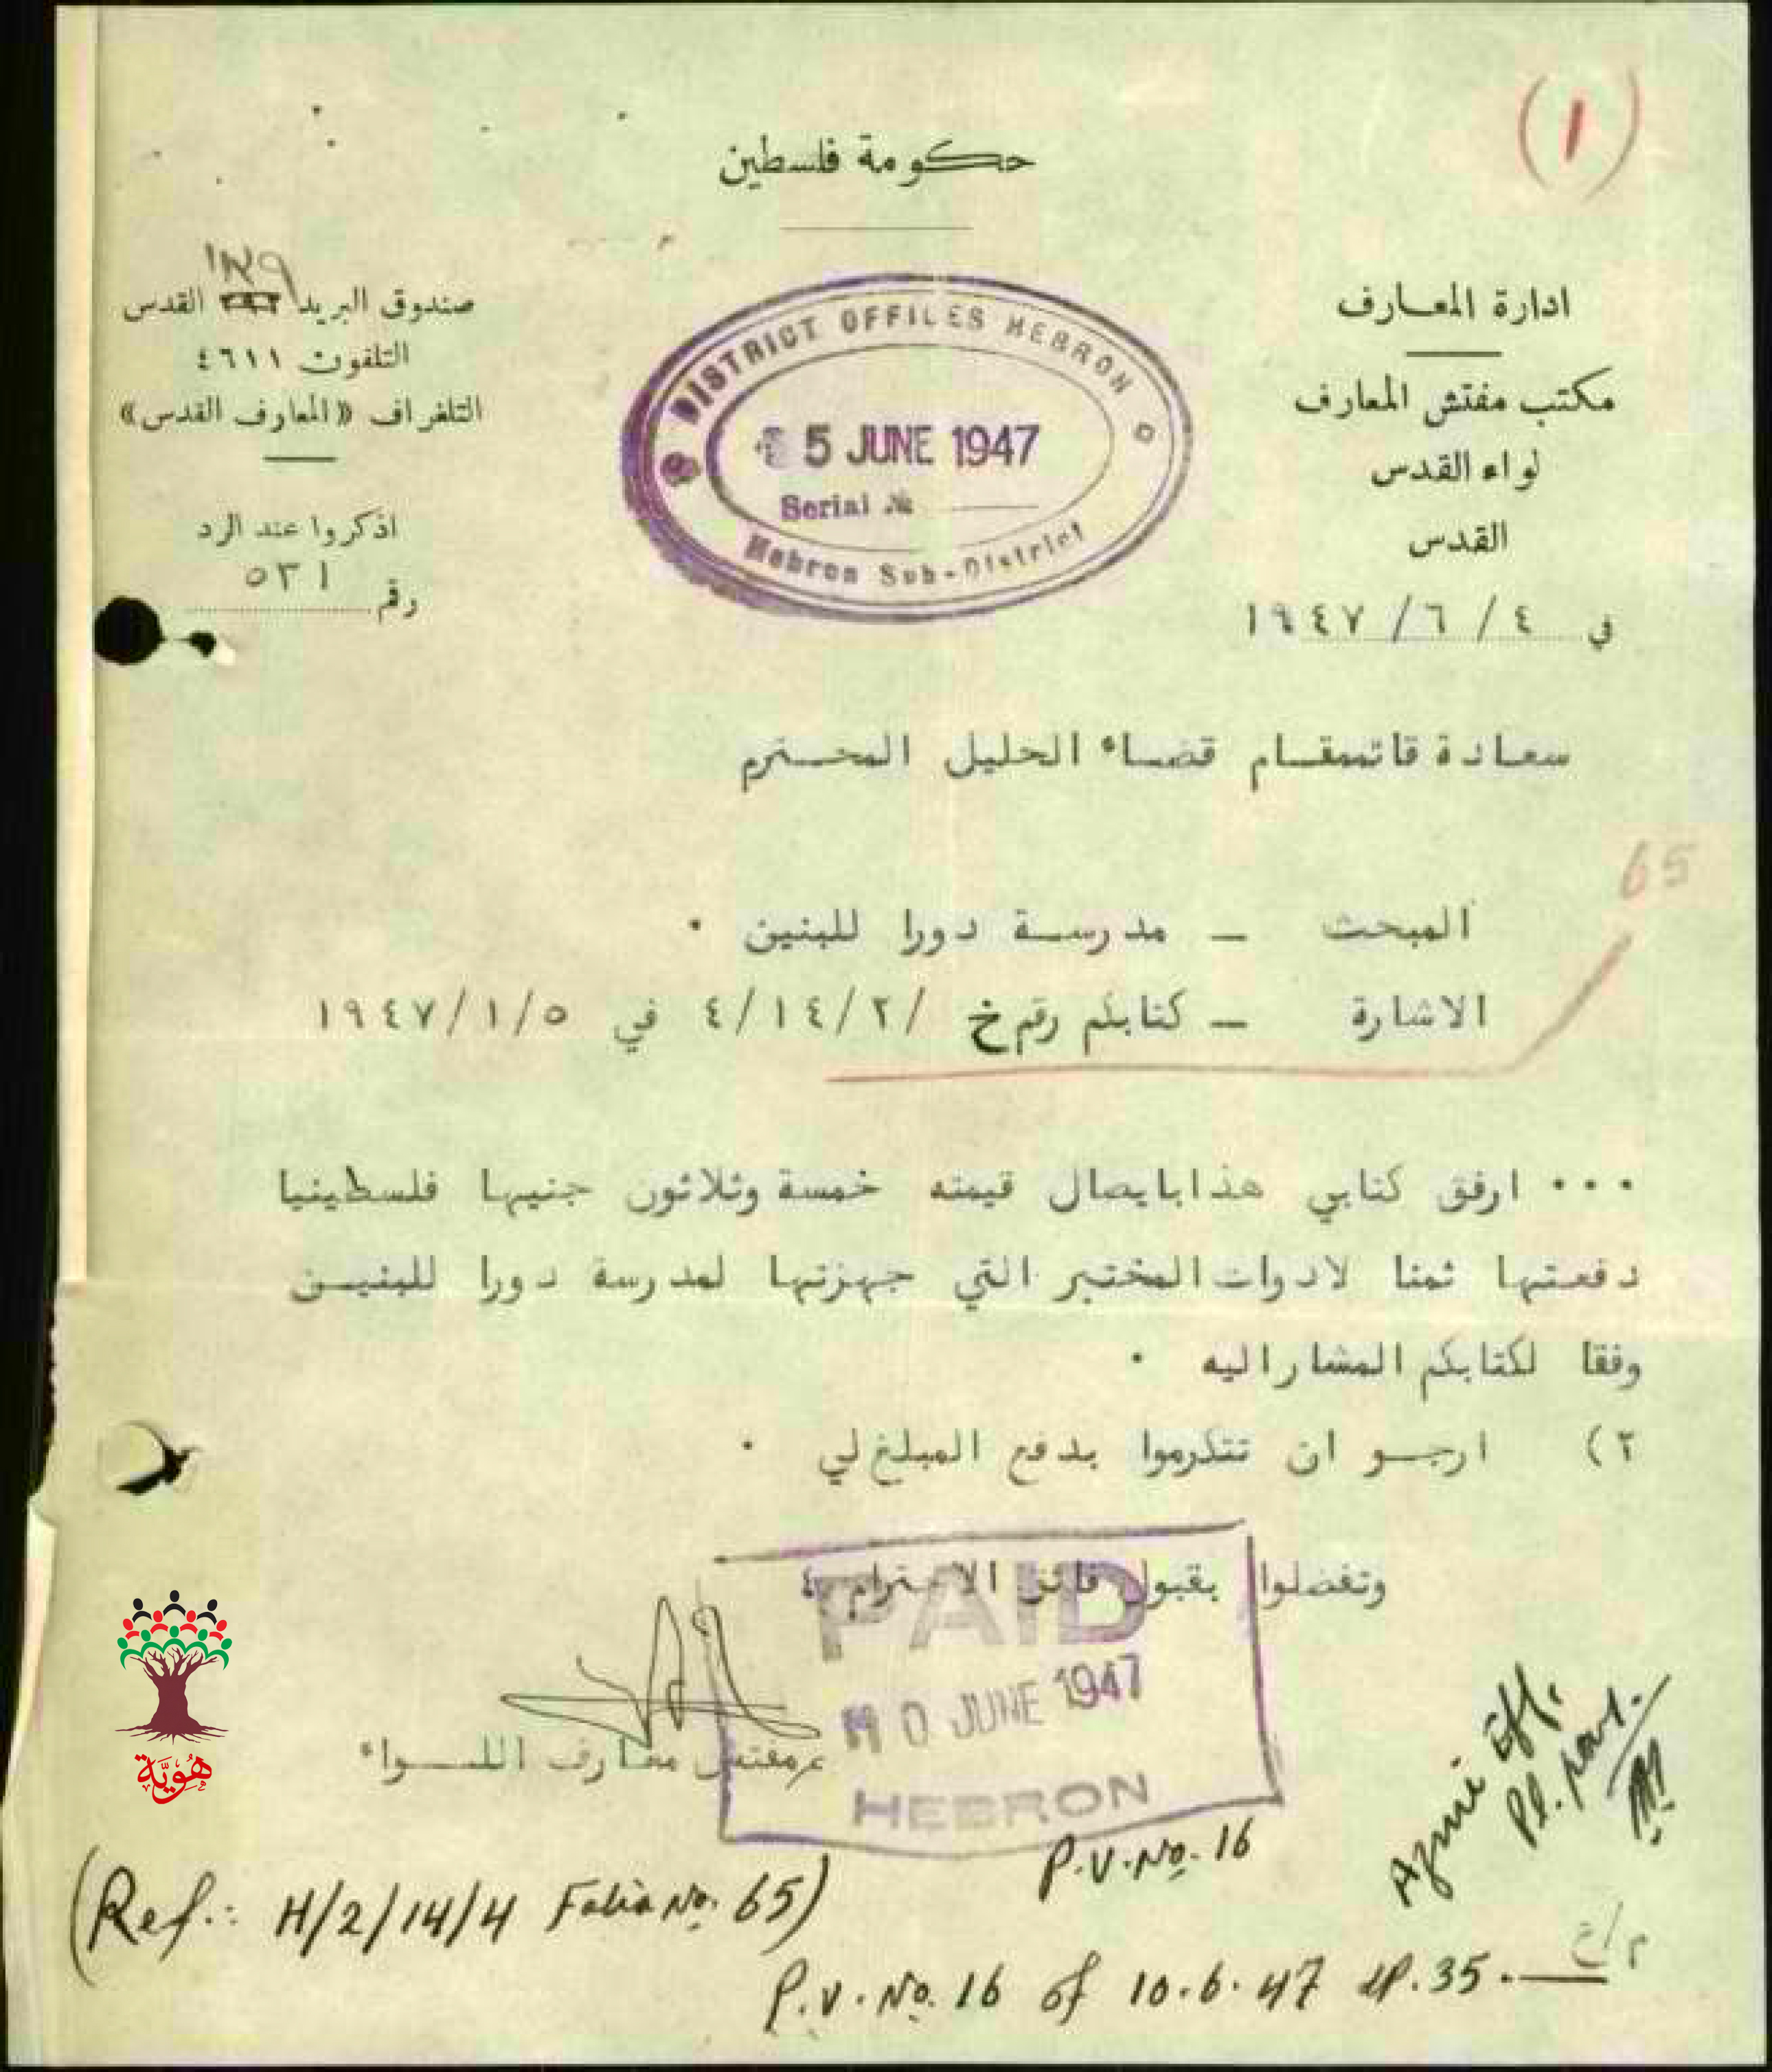 (١)
حكومة فلسطين
ادارة المعارف
مكتب مفتش المعارف
لواء القدس
القدس
في ٤ / ٦ / ١٩٤٧
١٢٩
صندوق البريد القدس
التلفون ٤٦١١
التلغراف «المعارف القدس»
اذكروا عند الرد
رقم ٥٣١
DISTRICT OFFILES HEBRON
5 JUNE 1947
Serial №
Hebron Sub-District
سعادة قائمقام قضاء الخليل المحترم
65
المبحث – مدرسة دورا للبنين ·
الاشارة – كتابكم رقم خ /٤/١٤/٢ في ١٩٤٧/١/٥
... ارفق كتابي هذا بايصال قيمته خمسة وثلاثون جنيها فلسطينيا
دفعتها ثمنا لادوات المختبر التي جهزتها لمدرسة دورا للبنين
وفقا لكتابكم المشار اليه ·
٢) ارجو ان تتكرموا بدفع المبلغ لي ·
وتفضلوا بقبول فائق الاحترام ؛
PAID
10 JUNE 1947
HEBRON
ع مفتش معارف اللواء
هُوِيَّة
Azmi Eff.
Pl. pay.
P.V. No. 16
(Ref.: H/2/14/4 Folio No. 65)
P.V. No. 16 of 10.6.47 LP. 35.—
م/ع